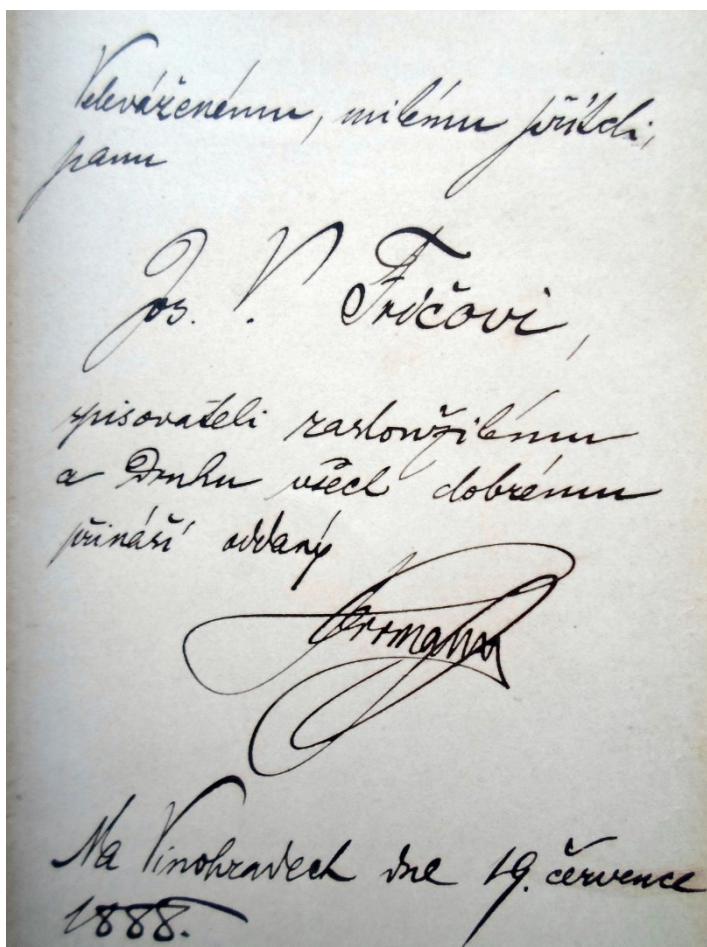 Veleváženému, milému příteli,
panu
Jos. V. Fričovi,
spisovateli zasloužilému
a Druhu všech dobrému
přináší oddaný
Na Vinohradech dne 19. července
1888.